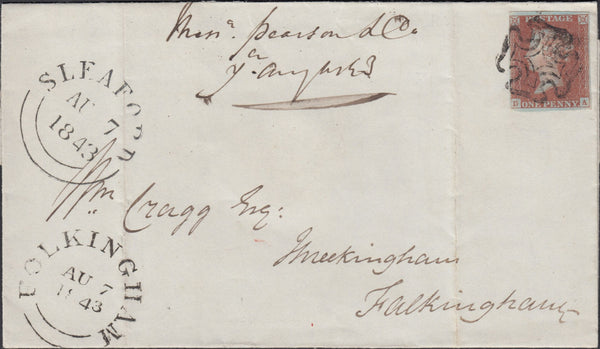 Messrs. Pearson & Co.
7th August
SLEAFORD
AU 7
1843
POSTAGE
A
ONE PENNY
Wm Cragg Esq:
Threekingham
Falkingham
FOLKINGHAM
AU 7
1843